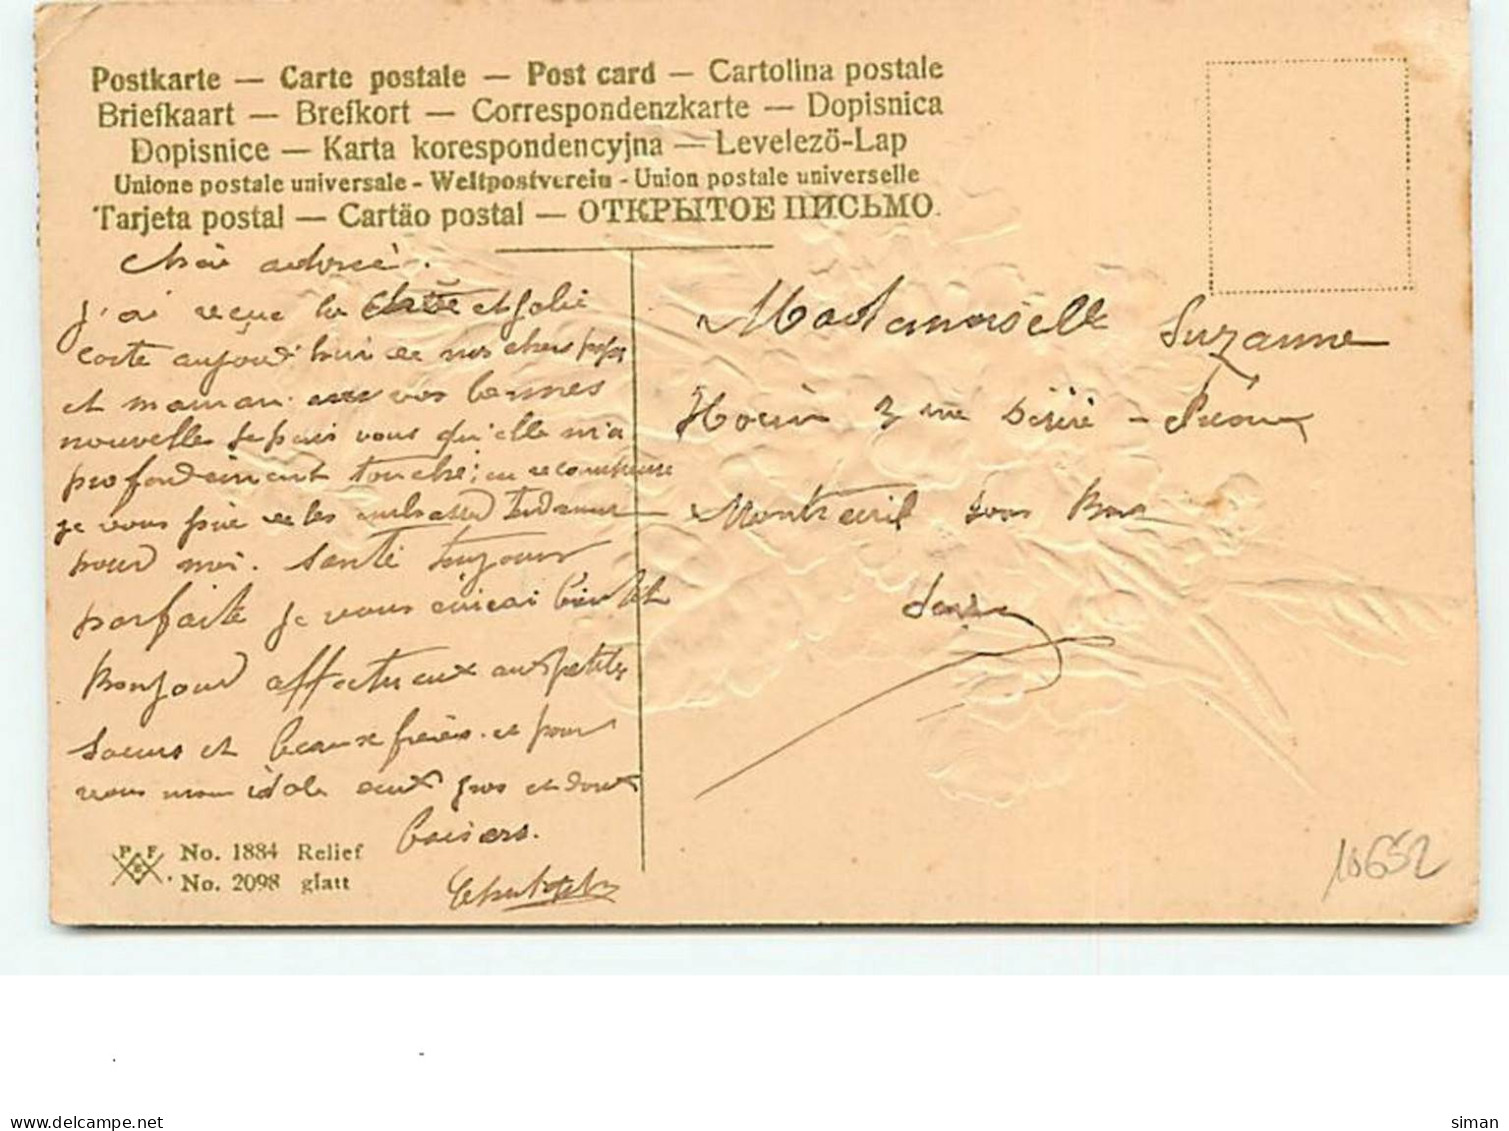 Postkarte — Carte postale — Post card — Cartolina postale
Briefkaart — Brefkort — Correspondenzkarte — Dopisnica
Dopisnice — Karta korespondencyjna — Levelezö-Lap
Unione postale universale - Weltpostverein - Union postale universelle
Tarjeta postal — Cartão postal — ОТКРЫТОЕ ПИСЬМО.
adorée.
J'ai reçue la et jolie
carte aujourd'hui de nos chers papa
et maman vos bonnes
nouvelles je puis vous qu'elle m'a
profondement touché; en recompense
je vous prie de les embrasser tendrement
pour moi. Santé toujours
parfaite je vous écirai bientôt
Bonjour affectueux aux petites
soeurs et beaux frères et pour
vous mon idole aux gros et doux
baisers.
Mademoiselle Suzanne
3 rue Désiré - Préaux
Montreuil sous Bois
Seine
P F
No. 1884 Relief
No. 2098 glatt
10652
www.delcampe.net
siman